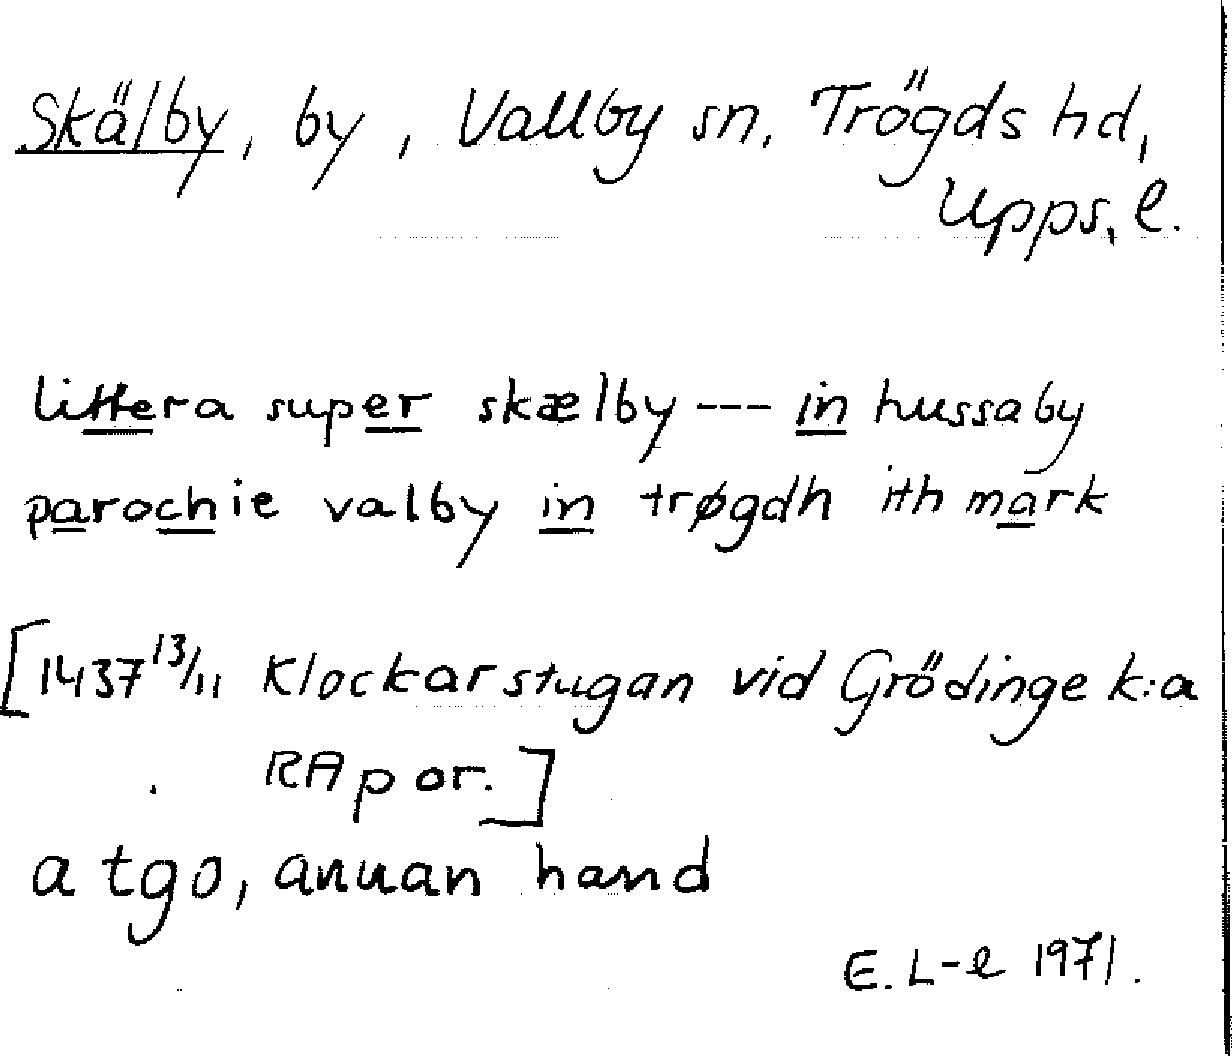 Skälby, by, Vallby sn, Trögds hd,
Upps. l.
littera super skælby --- in hussaby
parochie valby in trøgdh ith mark
[1437 13/11 Klockarstugan vid Grödinge k:a
RAp or.]
a tgo, anuan hand
E. L-e 1971.